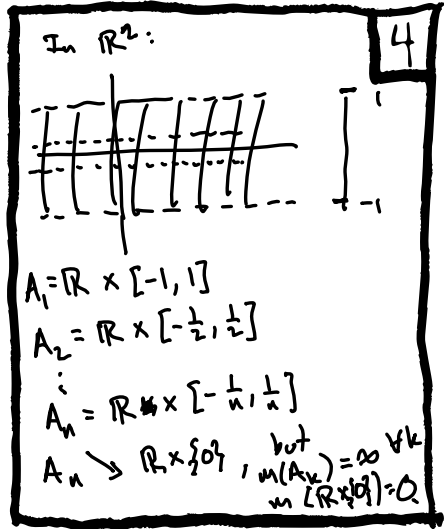 In ℝ²:
4
1
-1
A₁ = ℝ × [-1, 1]
A₂ = ℝ × [-1/2, 1/2]
⋮
Aₙ = ℝ × [-1/n, 1/n]
Aₙ ↘ ℝ × {0}, but m(Aₖ) = ∞ ∀k
m(ℝ×{0}) = 0.